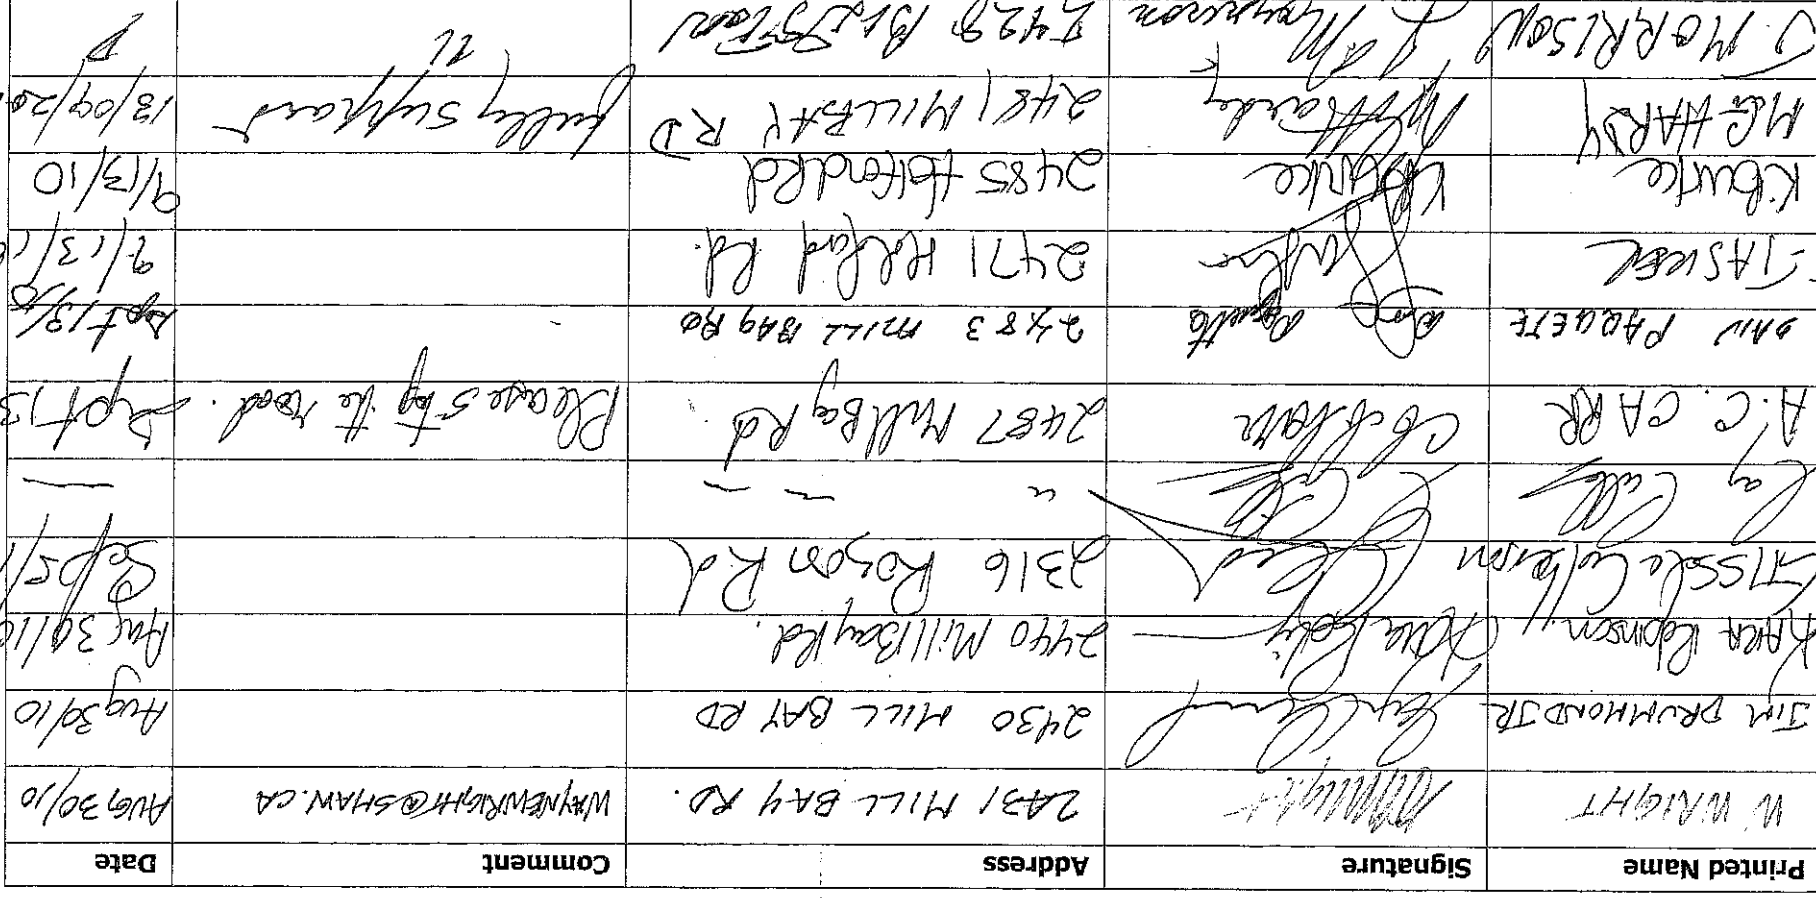 Printed Name Signature Address Comment Date
W. WRIGHT 2431 MILL BAY RD. WAYNEWRIGHT@SHAW.CA AUG 30/10
JIM DRUMMOND JR 2430 MILL BAY RD Aug 30/10
KARA Robinson 2440 Mill Bay Rd. Aug 30/10
Culberson 2316 Rozon Rd Sep 5/1
Ray " — — —
A.C. CARR 2487 Mill Bay Rd. Please stop the road. Sept 13
DAN PAQUETE Dan Paquette 2483 MILL BAY RD Sept 13/10
TASKER 2471 Holford Rd. 9/13/10
K. Burke KBurke 2485 Holford Rd 9/13/10
M G HARDY MGHardy 2481 MILLBAY RD fully support 13/09/20
J. MORRISON 2428 "